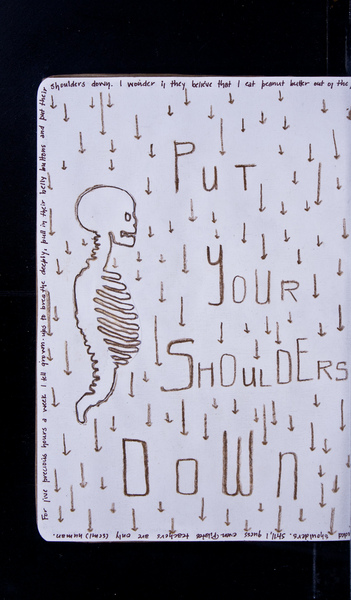 For five precious hours a week I tell grown-ups to breathe deeply, pull in their belly buttons and put their
shoulders down. I wonder if they believe that I eat peanut butter out of the
PUT
YOUR
SHOULDERS
DOWN
shoulders. Still, I guess even Pilates teachers are only (semi) human.